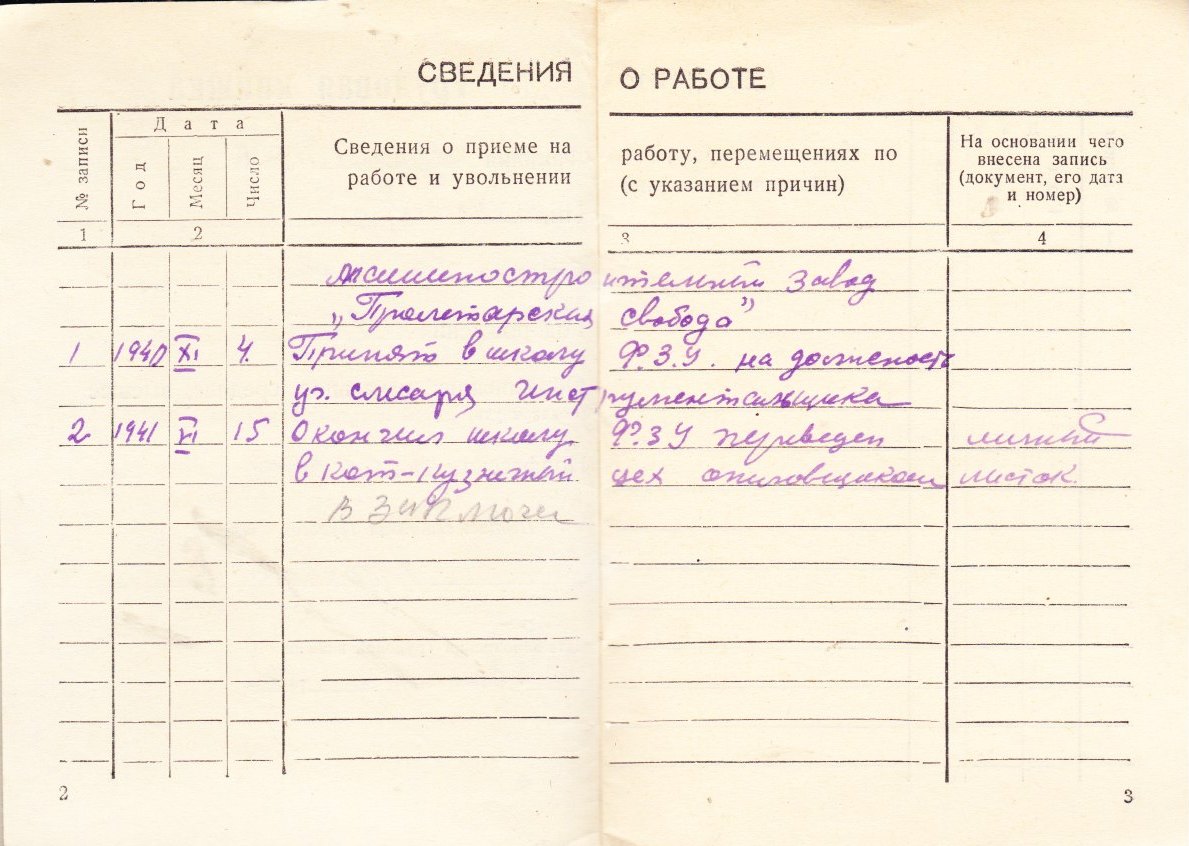 СВЕДЕНИЯ О РАБОТЕ
№ записи
Дата
Год
Месяц
Число
Сведения о приеме на работу, перемещениях по
работе и увольнении (с указанием причин)
На основании чего
внесена запись
(документ, его дата
и номер)
1 2 3 4
Машиностроительный завод
„Пролетарская свобода"
1 1940 XI 4. Принят в школу Ф.З.У. на должность
уч. слесаря инструментальщика
2 1941 VI 15 Окончил школу ФЗУ переведен личный
в кот-кузнечный цех опиловщиком листок
2
3